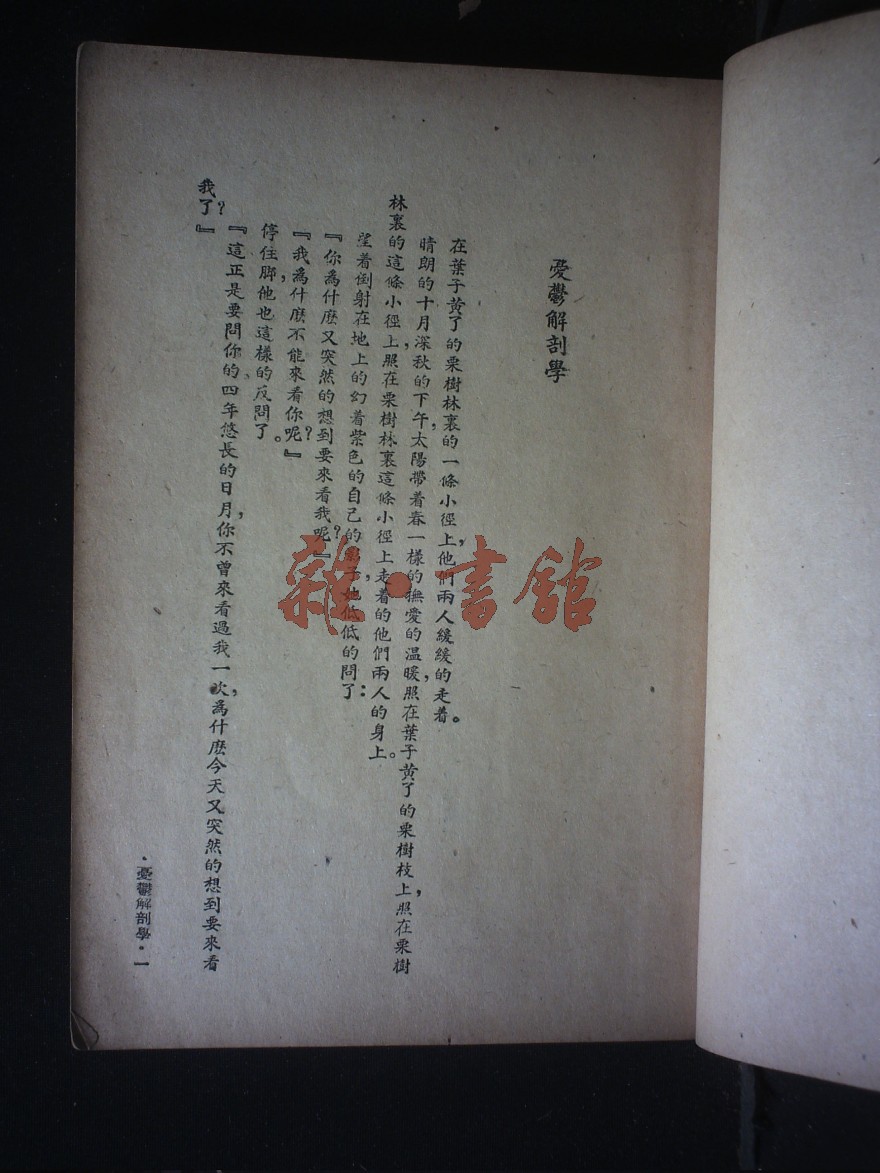 憂鬱解剖學
在葉子黃了的栗樹林裏的一條小徑上，他們兩人緩緩的走着。
晴朗的十月深秋的下午，太陽帶着春一樣的撫愛的温暖，照在葉子黃了的栗樹枝上，照在栗樹
林裏的這條小徑上，照在栗樹林裏這條小徑上走着的他們兩人的身上。
望着倒射在地上的幻着紫色的自己的影子，她低低的問了：
『你爲什麽又突然的想到要來看我呢？』
『我爲什麽不能來看你呢？』
停住脚，他也這樣的反問了。
『這正是要問你的、四年悠長的日月，你不曾來看過我一次，爲什麽今天又突然的想到要來看
我了？』
·憂鬱解剖學·一
雜·書館